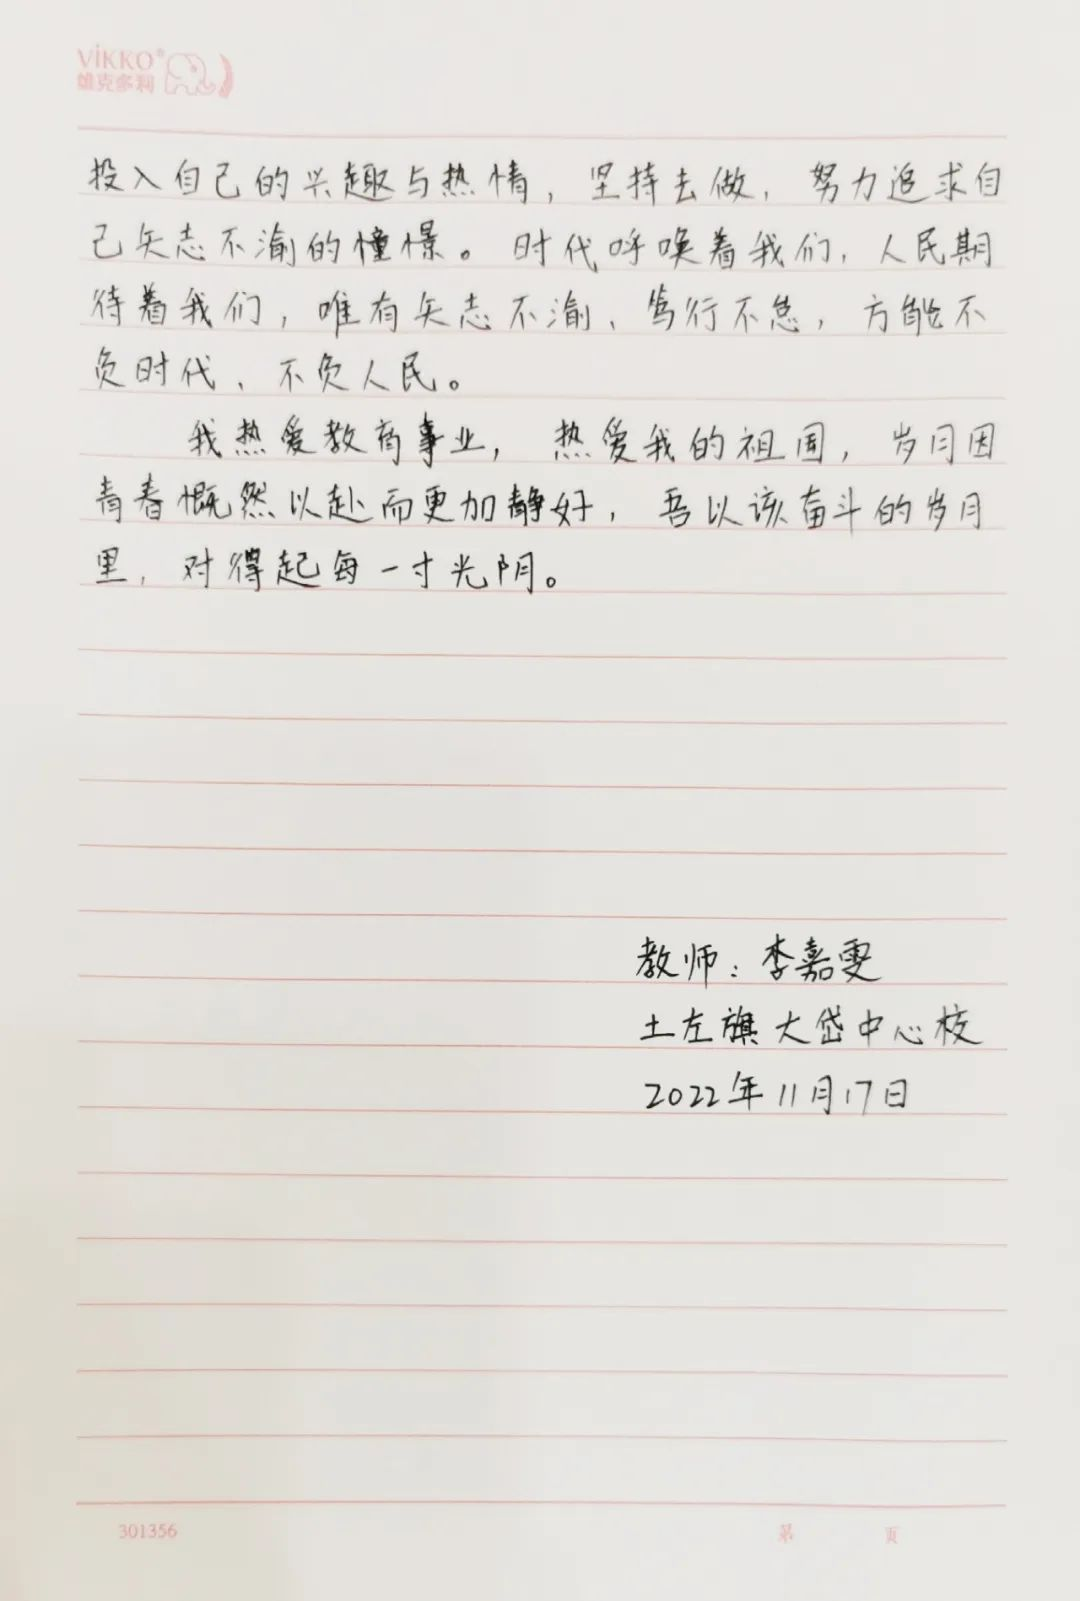 VIKKO®
维克多利
投入自己的兴趣与热情，坚持去做，努力追求自
己矢志不渝的憧憬。时代呼唤着我们，人民期
待着我们，唯有矢志不渝、笃行不怠，方能不
负时代、不负人民。
我热爱教育事业，热爱我的祖国，岁月因
青春慨然以赴而更加静好，吾以该奋斗的岁月
里，对得起每一寸光阴。
教师：李嘉雯
土左旗大岱中心校
2022年11月17日
301356
第 页